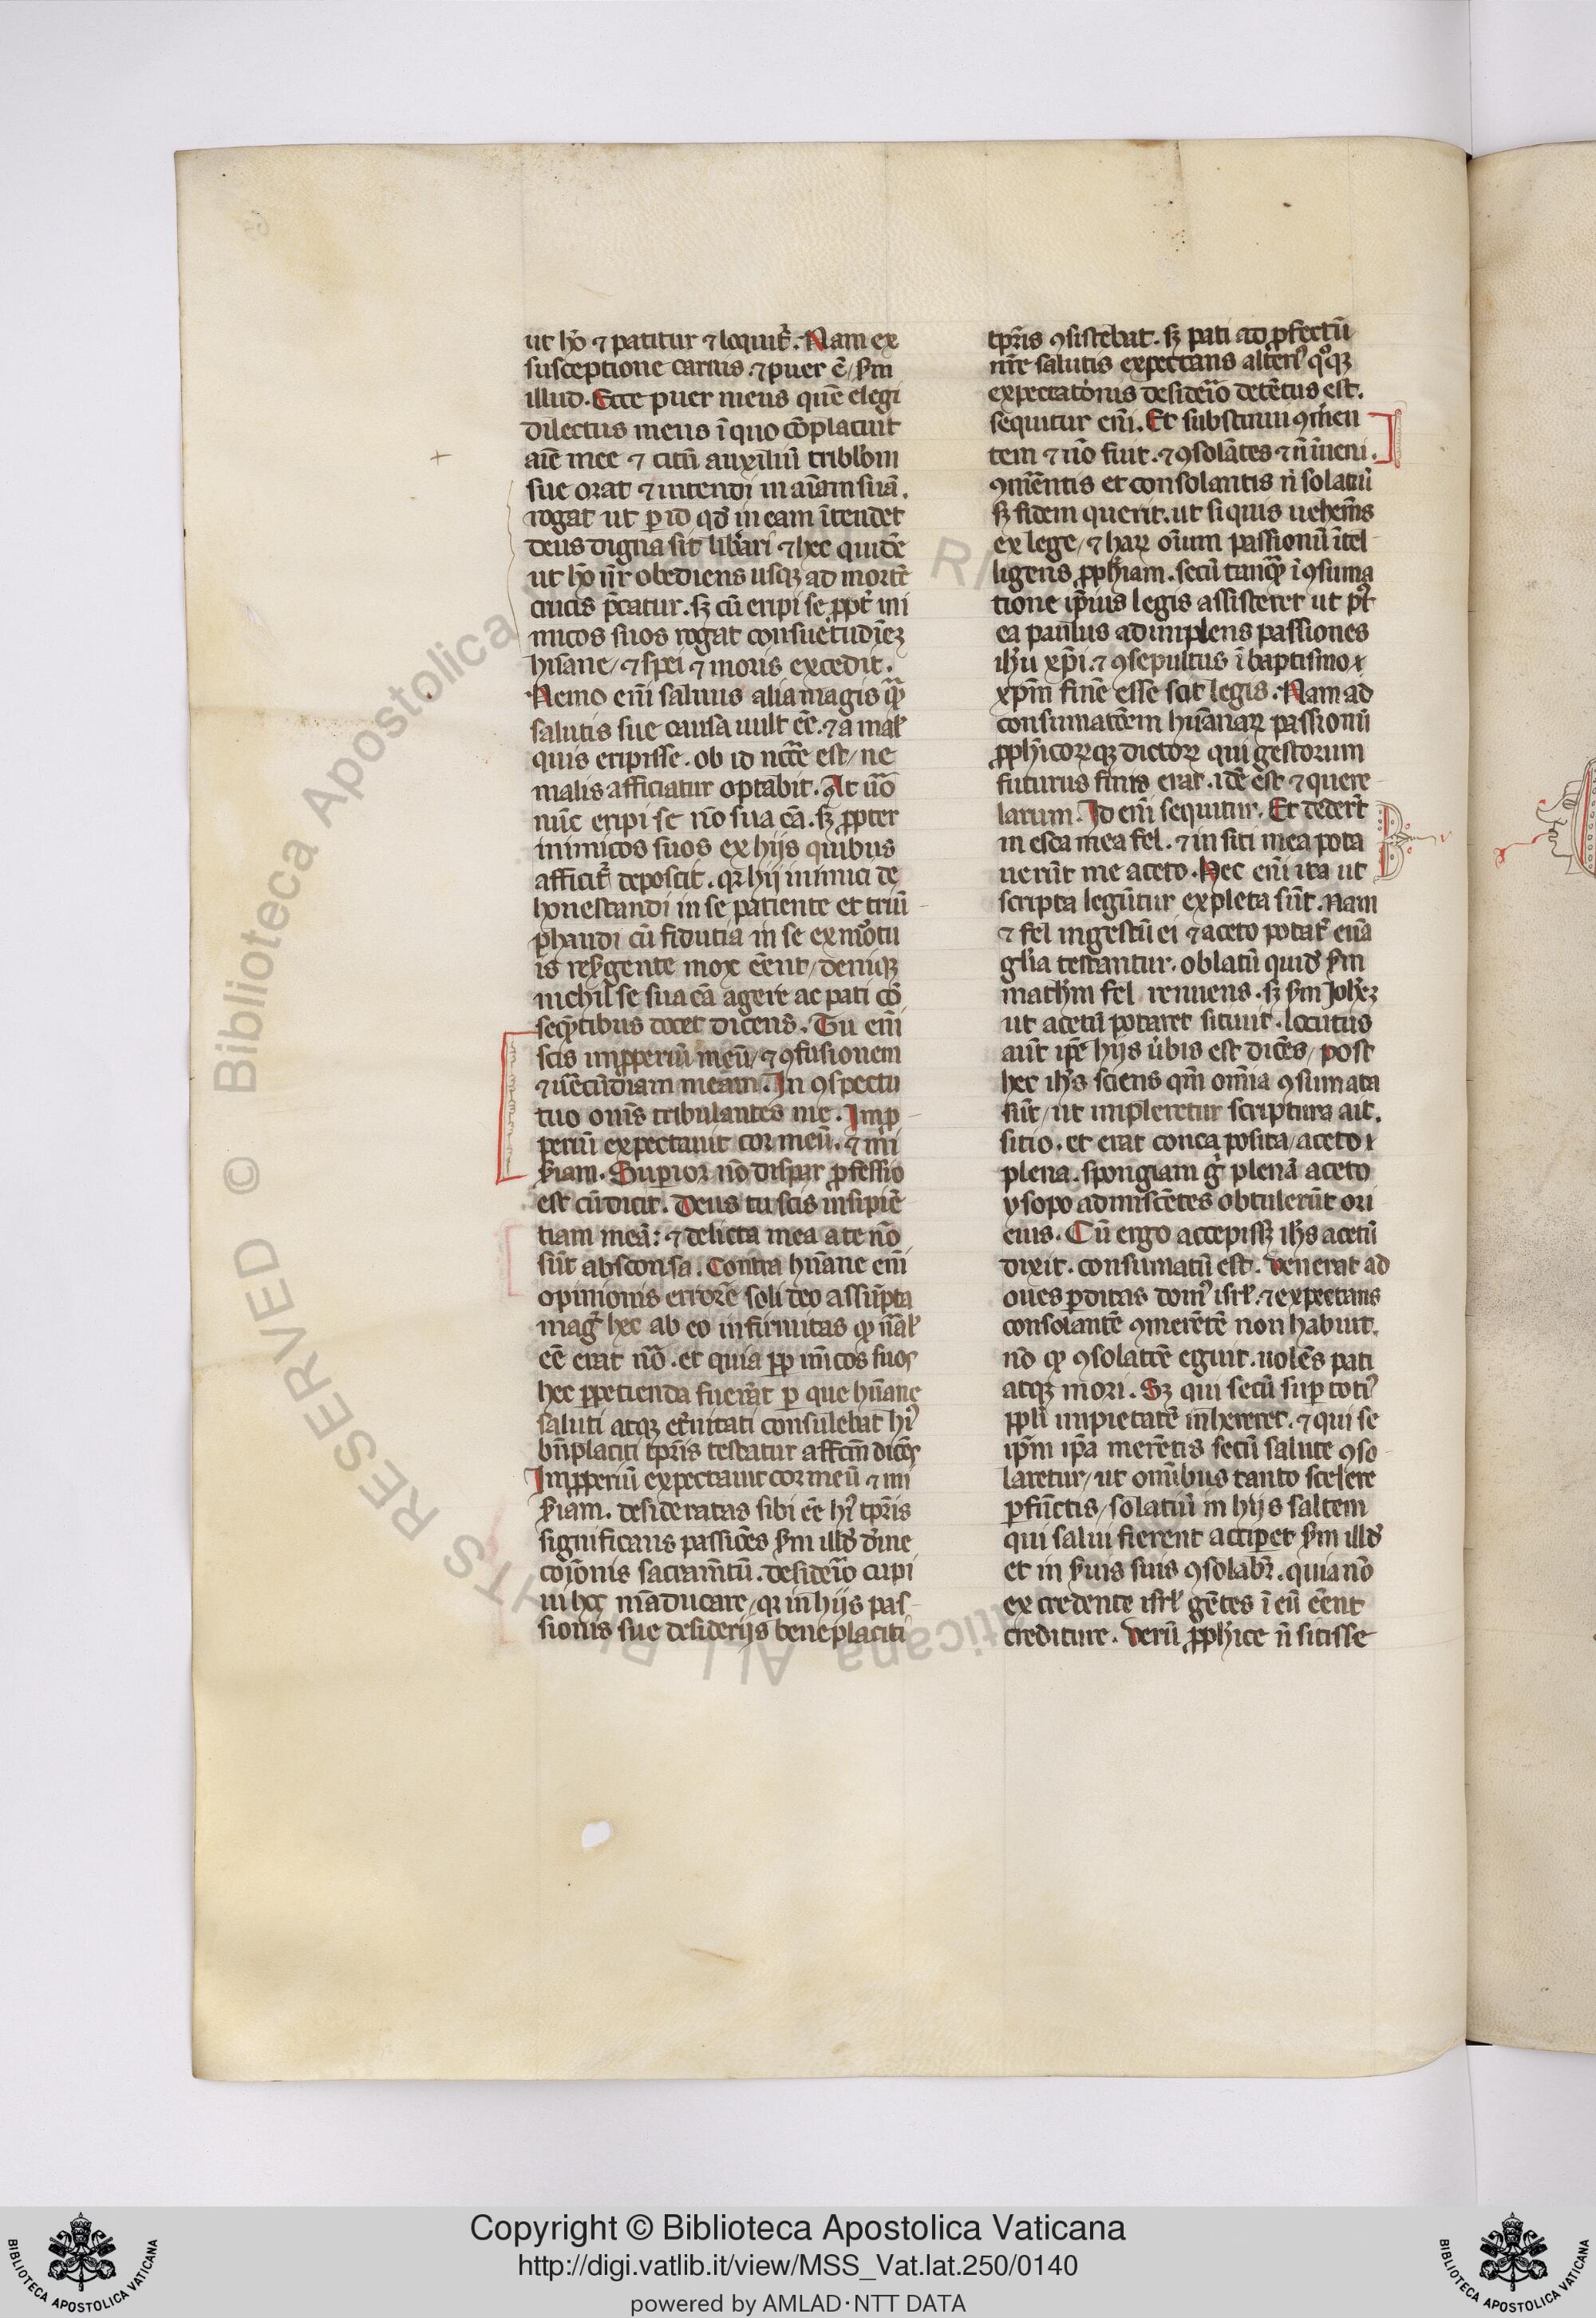 ut hō ⁊ patitur ⁊ loquit᷑. Nam ex
susceptione carnis. ⁊ puer ē/ s̄m
illud. Ecce puer meus quē elegi
dilectus meus ī quo cōplacuit
aīe mee ⁊ citū auxiliū tribl'om
sue orat ⁊ intendi in aīam suā.
rogat ut ꝑ id qd̄ in eam ītendet
deus digna sit lib̄ari ⁊ hec quidē
ut hō n̄r obediens usqꝫ ad mortē
crucis p̄catur. sꝫ cū eripi se ꝓpt̄ ini
micos suos rogat consuetudīeꝫ
h̄i sane/ ⁊ spei ⁊ moris excedit.
Nemo enī saluus alia magis qᷓꝫ
salutis sue causa uult eē. ⁊ a mal'
quis eripisse. ob id nccē est/ ne
malis afficiatur optabit. At ūo
nūc eripi se nō sua cā. sꝫ ꝓpter
inimicos suos ex hijs quibus
afficit᷑ deposcit. qꝛ hij inimici de
honestandi in se patiente et triū
phandi cū fidutia in se ex mōtu
is res̄gente mox eēnt/ deniqꝫ
nichil se sua cā agere ac pati cō
seq̄ntibus docet dicens. Tu enī
scis inꝓperiū meū/ ⁊ ꝯfusionem
⁊ uēcūdiam meam. In ꝯspectu
tuo om̄s tribulantes me. Imꝓ
periū expectauit cor meū. ⁊ mi
s̄iam. Supior nō dispar ꝓfessio
est cū dicit. Deus tu scis insipiē
tiam meā: ⁊ delicta mea a te nō
sūt absconsa. Contra hūane enī
opinionis errorē soli deo assūpta
mag᷑ hec ab eo infirmitas qꝫ nāl'
eē erat nō. et quia ꝓp im̄cos suos
hec ꝑpetienda fuerāt ꝑ que hūane
saluti atqꝫ et̄nitati consulebat hꝰ
bn̄placiti tp̄ris testatur affcm̄ dicēs
Imꝓperiū expectauit cor meū ⁊ mi
s̄iam. desideratas sibi eē hꝰ tp̄ris
significans passiōes s̄m illd̄ d̄ine
coīonis sacram̄tū. desideīo cupi
ui hec māducare/ qꝛ in hijs pas
sionis sue desiderijs beneplaciti
tp̄ris ꝯsistebat. sꝫ pati ad ꝓfectū
nr̄e salutis expectans alterꝰ qͦqꝫ
expectatōnis desideīo detētus est.
sequitur enī. Et substinui ꝯmeu
tem ⁊ nō fuit. ⁊ ꝯsolātes ⁊ n̄ īueni.
ꝯm̄entis et consolantis n̄ solatiū
sꝫ fidem querit. ut si quis uehem̄s
ex lege/ ⁊ haꝝ oīum passionū ītel
ligens ꝓph̄iam. secū tanqᷓꝫ ī ꝯsuma
tione ip̄ius legis assisteret ut pt̄
ea paulus adimplens passiones
ih̄u xp̄i. ⁊ ꝯsepultus ī baptismo ⁊
xp̄m finē esse scit legis. Nam ad
consumatōem hūanaꝝ passionū
ꝓph̄icorꝫqꝫ dictoꝝ qui gestorum
futurus finis erat. idē est ⁊ quere
larum. Id enī sequitur. Et dedert̄
in esca mea fel. ⁊ in siti mea pota
uerūt me aceto. Nec enī ita ut
scripta legūtur expleta sūt. Nam
⁊ fel ingestū ei ⁊ aceto potat᷑ euā
glia testantur. oblatū quid̄ s̄m
math̄m fel rennuens. sꝫ s̄m Joh̄eꝫ
ut acetū potaret sitiuit. locutus
aūt ip̄e hijs ūbis est dicēs/ post
hec ih̄s sciens qm̄ om̄ia ꝯsumata
sūt/ ut impleretur scriptura ait.
sitio. et erat conca posita/ aceto ⁊
plena. spongiam g᷑ plenā aceto
ysopo admiscētes obtulerūt ori
eius. Cū ergo accepissꝫ ih̄s acetū
dixit. consumatū est. Venerat ad
oues ꝑditas domꝰ isrl'. ⁊ expectans
consolantē ꝯmerētē non habuit.
nō qꝫ ꝯsolatōe eguit. uolēs pati
atqꝫ mori. Sꝫ qui secū sup totiꝰ
ppli impietatē inhereret. ⁊ qui se
ip̄m ip̄a merētis secū salute ꝯso
laretur/ ut omībus tanto scelere
ꝑfūctis/ solatiū in hijs saltem
qui salui fierent accip̄et s̄m illd̄
et in s̄uis suis ꝯsolabr̄. quia nō
ex credente isrl' gētes ī eū eēnt
crediture. Verū ꝓph̄ice n̄ sitisse
Copyright © Biblioteca Apostolica Vaticana
http://digi.vatlib.it/view/MSS_Vat.lat.250/0140
powered by AMLAD·NTT DATA